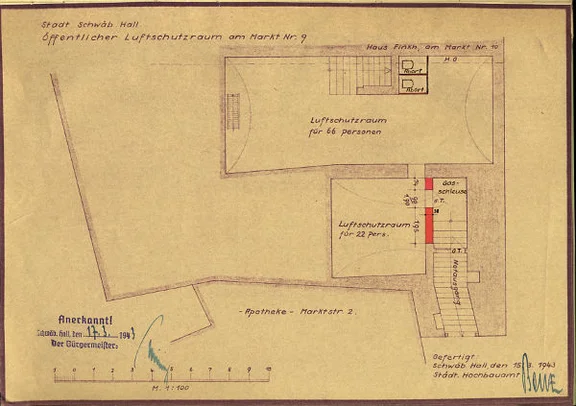 Stadt Schwäb. Hall.
Öffentlicher Luftschutzraum am Markt Nr. 9
Haus Finkh, am Markt Nr. 10
M.D
Abort
Abort
Luftschutzraum
für 66 Personen
Gas-
schleuse
G.T.
Luftschutzraum
für 22 Pers.
G.T.
Notausgang
- Apotheke - Marktstr 2.
Anerkannt!
Schwäb. Hall, den 17.3. 1943
Der Bürgermeister:
Gefertigt
Schwäb Hall, den 15.3. 1943
Städt. Hochbauamt
Benz
0 1 2 3 4 5 6 7 8 9 10
M. 1:100